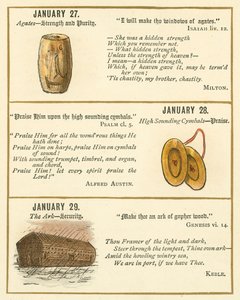 JANUARY 27.
Agates—Strength and Purity.
"I will make thy windows of agates."
ISAIAH liv. 12.
— She was a hidden strength
Which you remember not.
— What hidden strength,
Unless the strength of heaven?—
I mean—a hidden strength,
Which, if heaven gave it, may be term'd
her own;
'Tis chastity, my brother, chastity.
MILTON.
JANUARY 28.
High Sounding Cymbals—Praise.
"Praise Him upon the high sounding cymbals."
PSALM cl. 5.
"Praise Him for all the wond'rous things He
hath done;
Praise Him on harps, praise Him on cymbals
of sound:
With sounding trumpet, timbrel, and organ,
and chord,
Praise Him! let every spirit praise the
Lord!"
ALFRED AUSTIN.
JANUARY 29.
The Ark—Security.
"Make thee an ark of gopher wood."
GENESIS vi. 14.
Thou Framer of the light and dark,
Steer through the tempest, Thine own ark—
Amid the howling wintry sea,
We are in port, if we have Thee.
KEBLE.